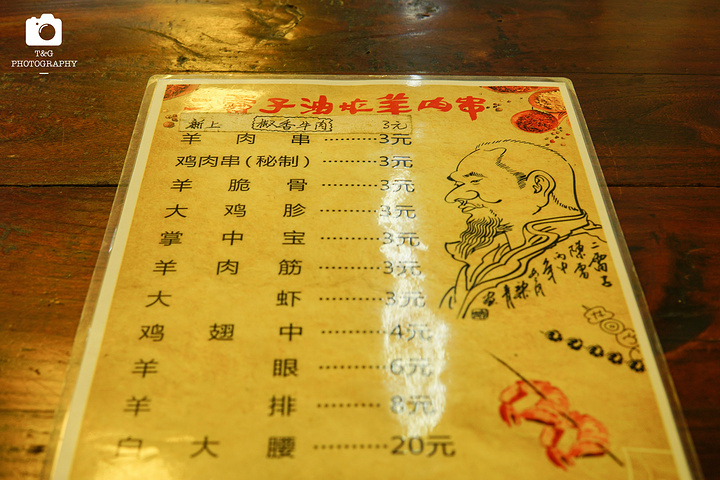 T&G
PHOTOGRAPHY
二雷子油炸羊肉串
新上 椒香牛肉 3元
羊肉串………3元
鸡肉串(秘制)………3元
羊脆骨………3元
大鸡胗………3元
掌中宝………3元
羊肉筋………3元
大虾………3元
鸡翅中………4元
羊眼………6元
羊排………8元
白大腰………20元
二雷子
陳雷